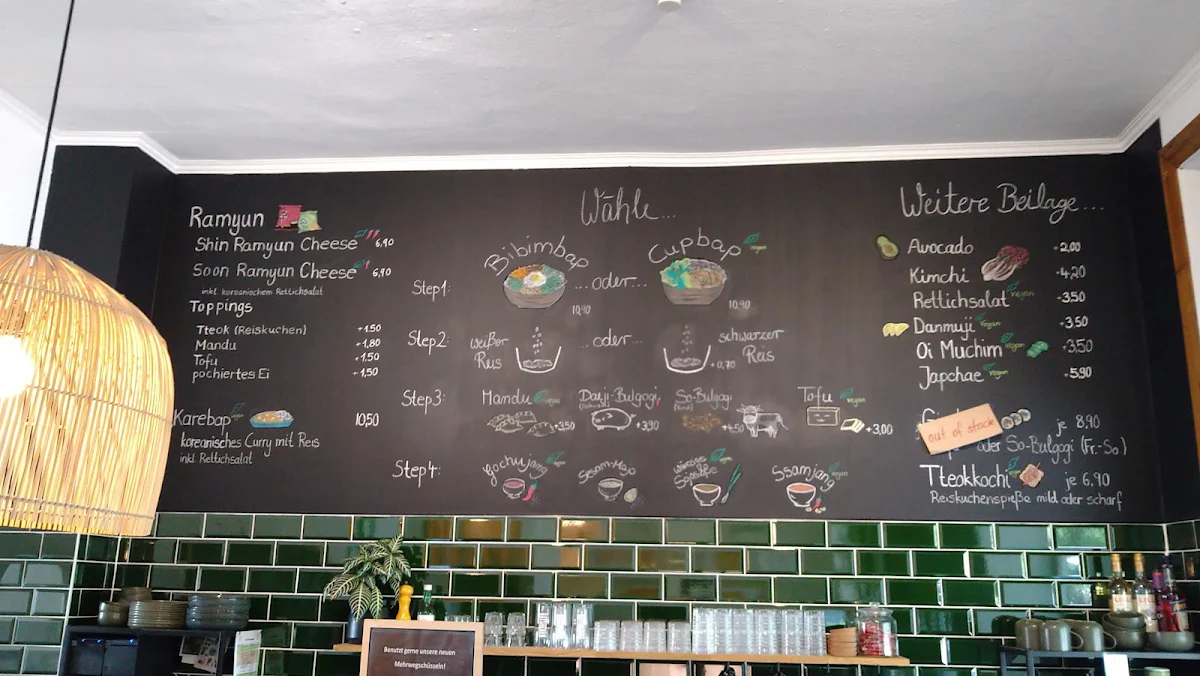 Ramyun
Shin Ramyun Cheese 6,90
Soon Ramyun Cheese 6,90
inkl. koreanischem Rettichsalat
Toppings
Tteok (Reiskuchen) +1,50
Mandu +1,80
Tofu +1,50
pochiertes Ei +1,50
Karebap 10,50
koreanisches Curry mit Reis
inkl. Rettichsalat
Wähle...
Bibimbap ...oder... Cupbap vegan
Step1:
10,90 10,90
Step2: weißer Reis ...oder... schwarzer Reis
+0,70
Step3: Mandu vegan Daeji-Bulgogi So-Bulgogi Tofu vegan
+3,50 +3,90 +4,50 +3,00
Step4: Gochujang Sesam-Mayo Würzige Sojasoße Ssamjang vegan
Weitere Beilage...
Avocado -2,00
Kimchi -4,20
Rettichsalat vegan -3,50
Danmuji vegan +3,50
Oi Muchim vegan +3,50
Japchae vegan -5,90
out of stock
je 8,90
oder So-Bulgogi (Fr.-So.)
Tteokkochi vegan je 6,90
Reiskuchenspieße mild oder scharf
Benutzt gerne unsere neuen
Mehrwegschüsseln!